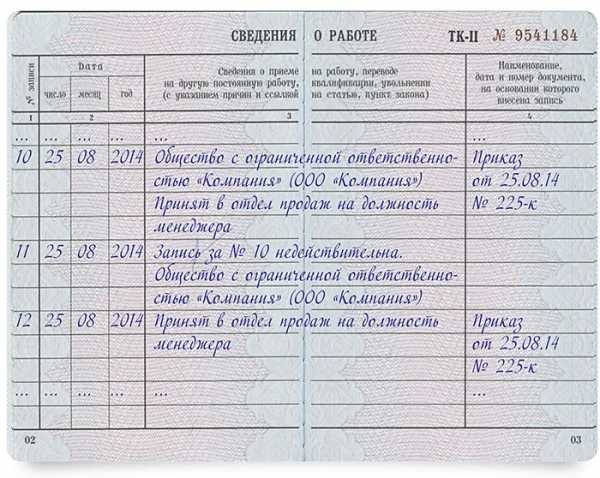 СВЕДЕНИЯ О РАБОТЕ ТК-II № 9541184
№ записи
Дата
число месяц год
Сведения о приеме на работу, переводе
на другую постоянную работу, квалификации, увольнении
(с указанием причин и ссылкой на статью, пункт закона)
Наименование,
дата и номер документа,
на основании которого
внесена запись
1 2 3 4
... ... ...
10 25 08 2014 Общество с ограниченной ответственно- Приказ
стью «Компания» (ООО «Компания») от 25.08.14
Принят в отдел продаж на должность № 225-к
менеджера
11 25 08 2014 Запись за № 10 недействительна.
Общество с ограниченной ответственно-
стью «Компания» (ООО «Компания»)
12 25 08 2014 Принят в отдел продаж на должность Приказ
менеджера от 25.08.14
№ 225-к
... ... ... ... ... ...
02 03